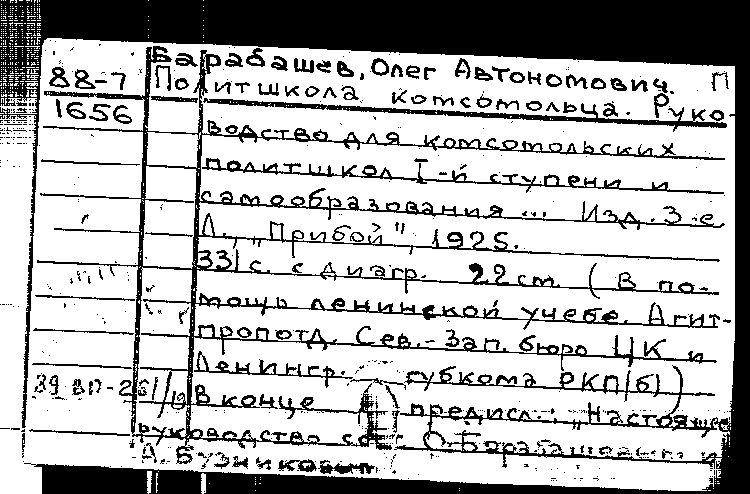 Барабашев, Олег Автономович. П
88-7 Политшкола комсомольца. Руко-
1656
водство для комсомольских
политшкол I-й ступени и
самообразования ... Изд. 3-е.
Л., „Прибой", 1925.
331 с. с диагр. 22 см. (В по-
мощь ленинской учебе. Агит-
пропотд. Сев.-Зап. бюро ЦК и
Ленингр. губкома РКП(б))
В конце предисл.: „Настоящее
руководство сост. О. Барабашевым и
А. Бузниковым